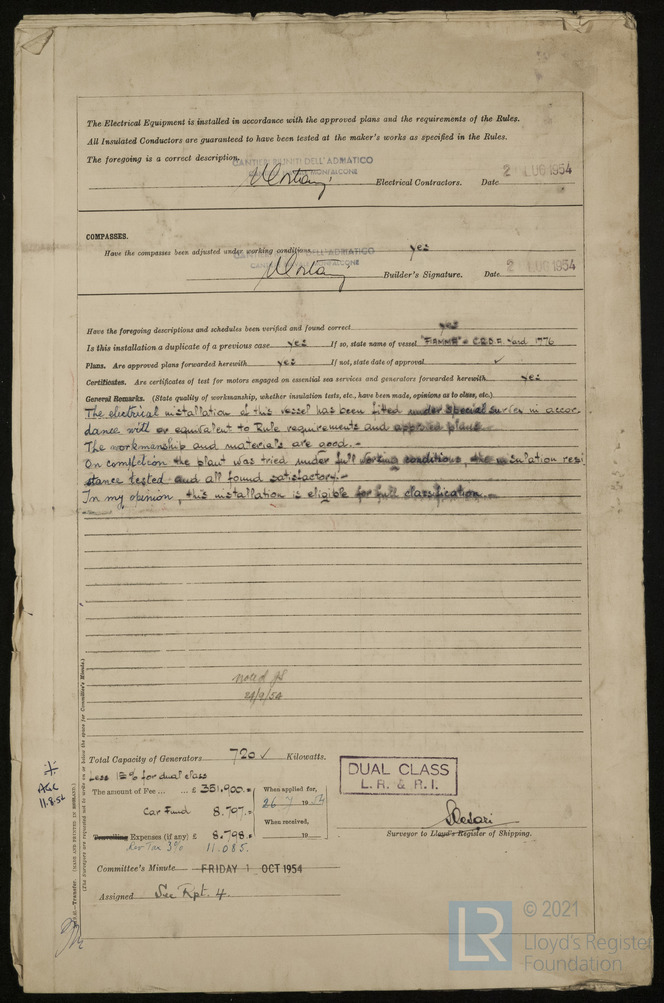 The Electrical Equipment is installed in accordance with the approved plans and the requirements of the Rules.
All Insulated Conductors are guaranteed to have been tested at the maker's works as specified in the Rules.
The foregoing is a correct description.
CANTIERI RIUNITI DELL'ADRIATICO
MONFALCONE
Electrical Contractors. Date 2 LUG 1954
COMPASSES.
Have the compasses been adjusted under working conditions yes
DELL'ADRIATICO
MONFALCONE
Builder's Signature. Date 2 LUG 1954
Have the foregoing descriptions and schedules been verified and found correct yes
Is this installation a duplicate of a previous case yes If so, state name of vessel "FIAMMA" = C.R.D.A. Yard 1776
Plans. Are approved plans forwarded herewith yes If not, state date of approval ✓
Certificates. Are certificates of test for motors engaged on essential sea services and generators forwarded herewith yes
General Remarks. (State quality of workmanship, whether insulation tests, etc., have been made, opinions as to class, etc.)
The electrical installation of this vessel has been fitted under special survey in accor-
dance with or equivalent to Rule requirements and approved plans.
The workmanship and materials are good.-
On completion the plant was tried under full working conditions, the insulation resi
stance tested and all found satisfactory.-
In my opinion, this installation is eligible for full classification.-
noted
24/9/54
Total Capacity of Generators 720 ✓ Kilowatts.
Less 12% for dual class
The amount of Fee ... ... £ 351,900.=
When applied for,
26 7 19 54
Car Fund 8.797.=
When received,
Travelling Expenses (if any) £ 8.798.=
19
Rev Tax 3% 11.085.
DUAL CLASS
L. R. & R. I.
Surveyor to Lloyd's Register of Shipping.
Committee's Minute FRIDAY 1 OCT 1954
Assigned See Rpt. 4.
AGC
11.8.54
Transfer. (MADE AND PRINTED IN ENGLAND.)
(The Surveyors are requested not to write on or below the space for Committee's Minute.)
LR
© 2021
Lloyd's Register
Foundation